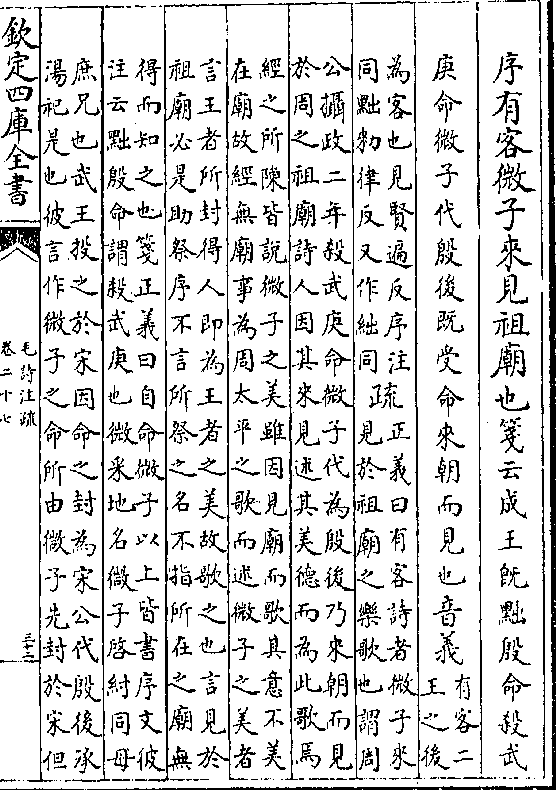 序有客微子來見祖廟也箋云成王既黜殷命殺武
庚命微子代殷後既受命來朝而見也音義
有客二
王之後
為客也見賢遍反序注
同黜勑律反又作絀同
疏
正義曰有客詩者微子來
見於祖廟之樂歌也謂周
公攝政二年殺武庚命微子代為殷後乃來朝而見
於周之祖廟詩人因其來見述其美德而為此歌焉
經之所陳皆說微子之美雖因見廟而歌其意不美
在廟故經無廟事為周太平之歌而述微子之美者
言王者所封得人即為王者之美故歌之也言見於
祖廟必是助祭序不言所祭之名不指所在之廟無
得而知之也箋正義曰自命微子以上皆書序文彼
注云黜殷命謂殺武庚也微采地名微子啓紂同母
庶兄也武王投之於宋因命之封為宋公代殷後承
湯祀是也彼言作微子之命所由微子先封於宋但
欽定四庫全書
毛詩注疏
卷二十七
三十二